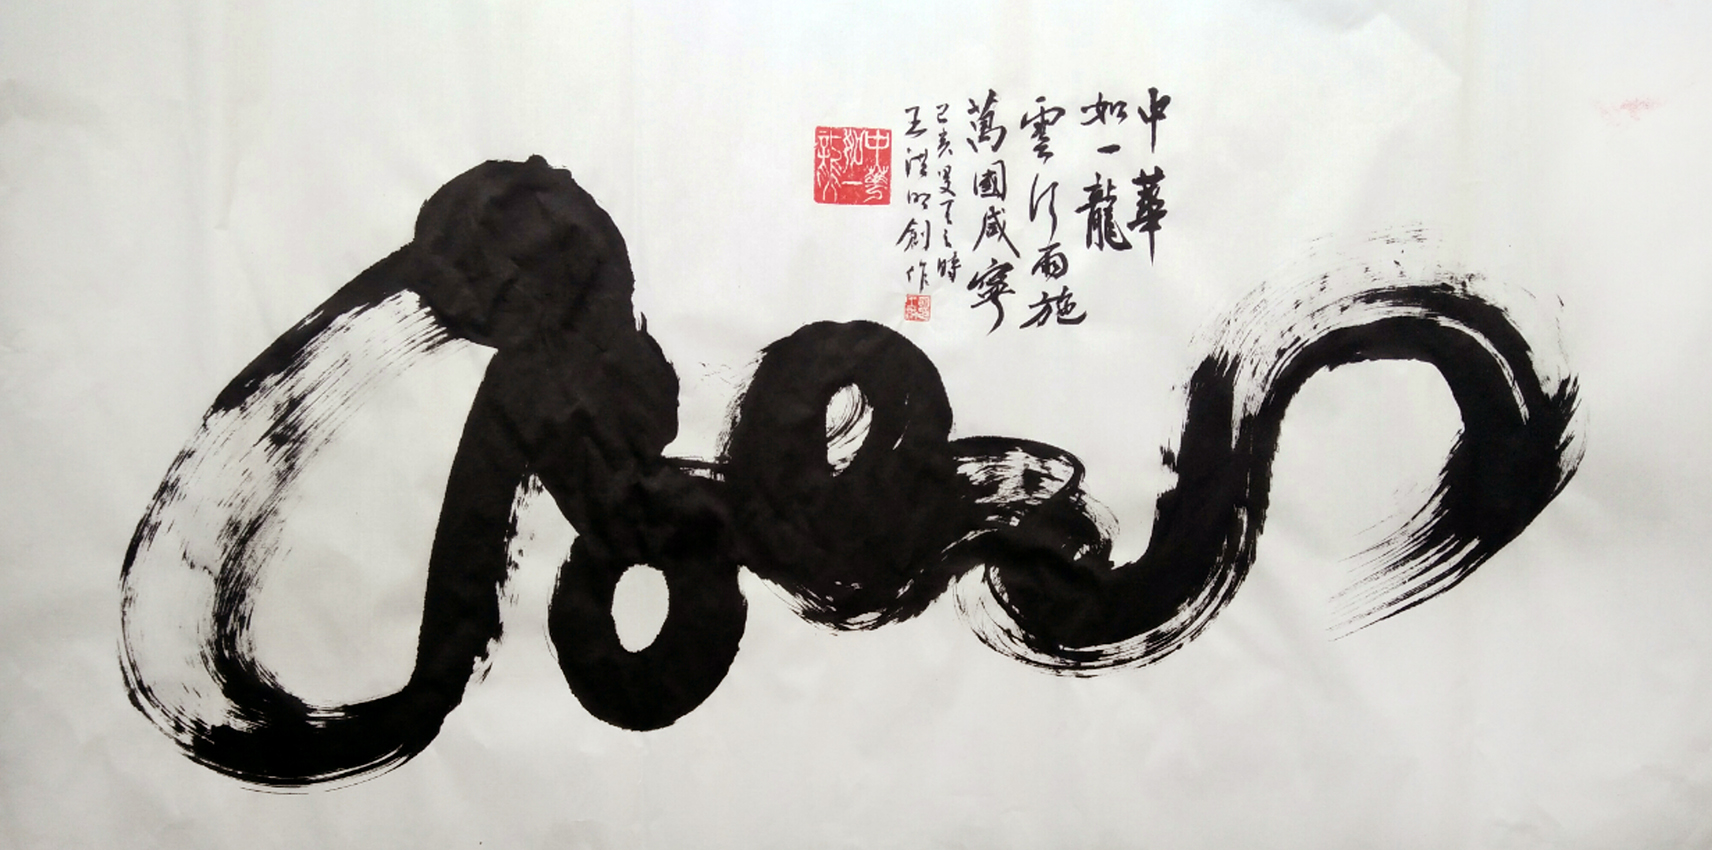 中華
如一龍
雲行雨施
萬國咸寧
己亥夏月之時
王洪明創作
中華如一龍